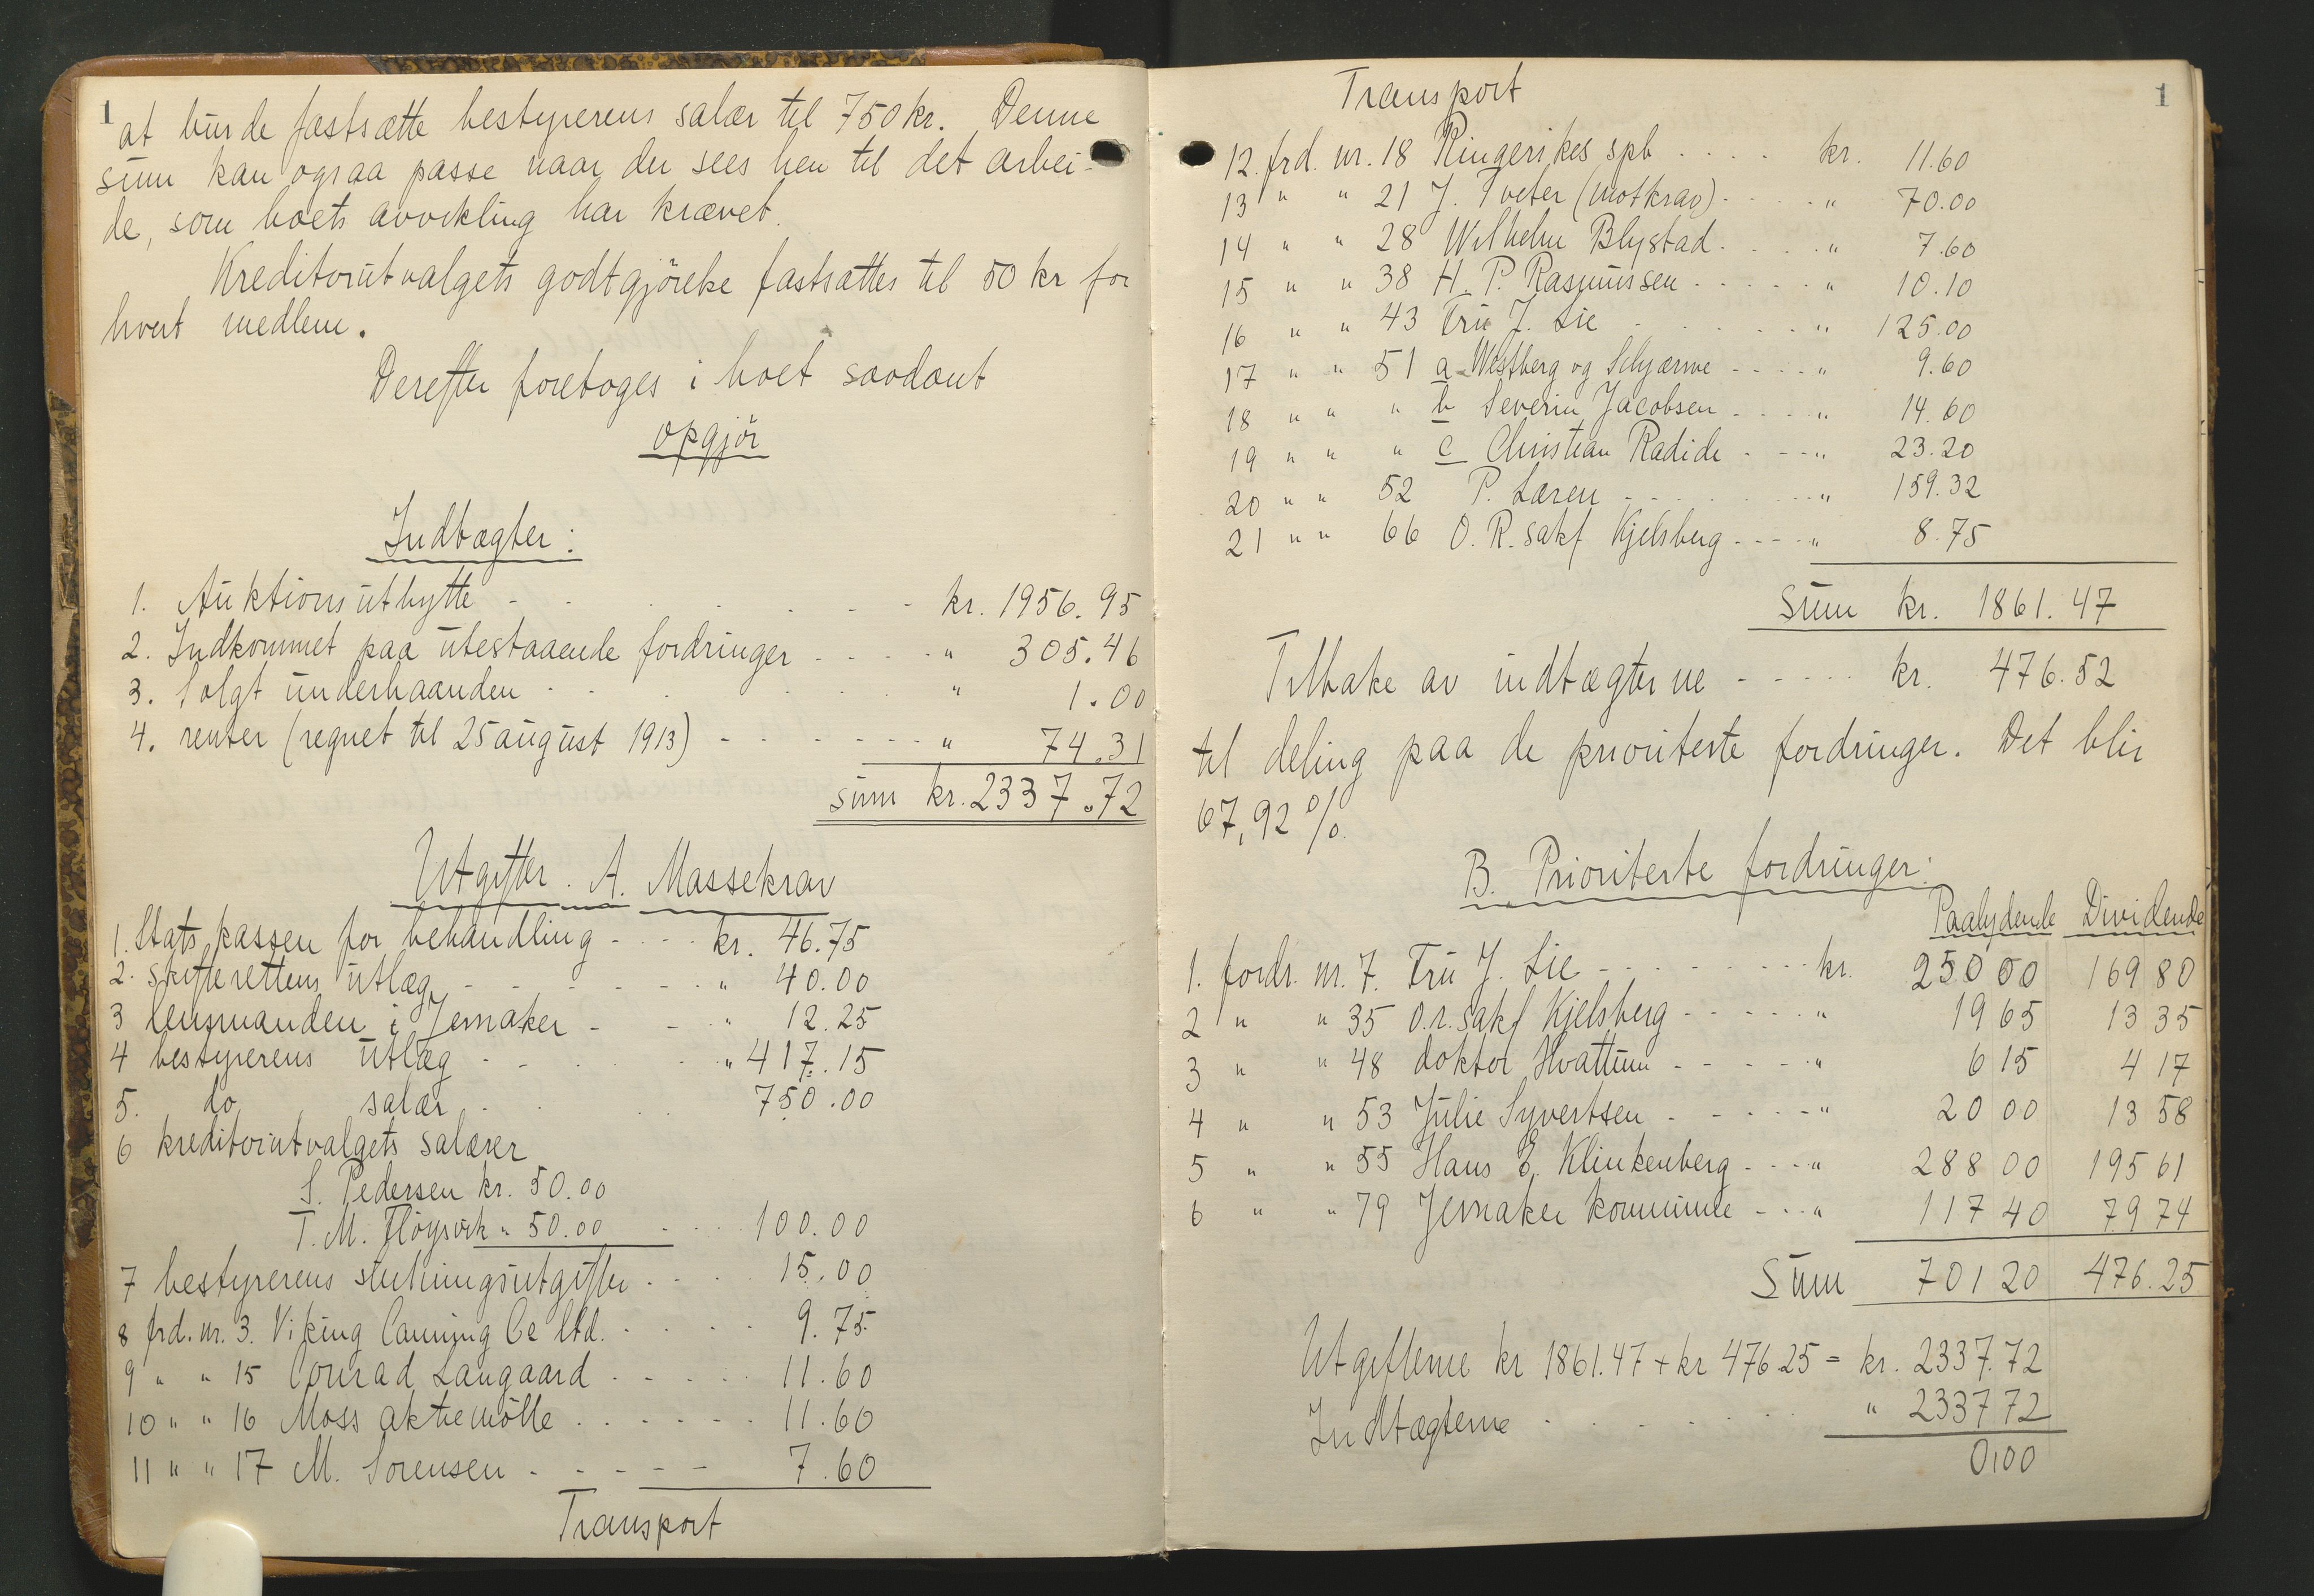 1
at burde fastsætte bestyrerens salær til 750 kr. Denne
sum kan ogsaa passe naar der sees hen til det arbei-
de, som boets avvikling har krævet.
Kreditorutvalgets godtgjörelse fastsættes til 50 kr for
hvert medlem.
Derefter foretoges i boet saadant
opgjör
Indtægter:
1. Auktionsutbytte - - - - kr. 1956.95
2. Indkommet paa utestaaende fordringer - - - - " 305.46
3. Solgt underhaanden - - - - " 1.00
4. renter (regnet til 25 august 1913) - - - - " 74.31
sum kr. 2337.72
Utgifter. A. Massekrav
1. Statskassen for behandling - - - - kr. 46.75
2. skifterettens utlæg - - - - " 40.00
3 lensmanden i Jevnaker - - - " 12.25
4 bestyrerens utlæg - - - - " 417.15
5. do salær - - - 750.00
6 kreditorutvalgets salærer
S. Pedersen kr. 50.00
T. M. Fløysvik " 50.00 - - - 100.00
7 bestyrerens slutningsutgifter - - - - 15.00
8 frd. nr. 3. Viking Canning Co ltd. - - - - 9.75
9 " " 15 Conrad Langaard - - - - 11.60
10 " " 16 Moss aktiemölle - - - - 11.60
11 " " 17 M. Sorensen - - - - 7.60
Transport
1
Transport
12. frd. nr. 18 Ringerikes spb - - - - kr. 11.60
13 " " 21 J. Tveter (motkrav) - - - - " 70.00
14 " " 28 Wilhelm Blystad - - - - " 7.60
15 " " 38 H. P. Rasmussen - - - - " 10.10
16 " " 43 Fru J. Lie - - - - " 125.00
17 " " 51 a Westberg og Schjærwe - - - - " 9.60
18 " " " b Severin Jacobsen - - - - " 14.60
19 " " " c Christian Radich - - - " 23.20
20 " " 52 P. Laren - - - - " 159.32
21 " " 66 O. R. sakf Kjelsberg - - - - " 8.75
Sum kr. 1861.47
Tilbake av indtægterne - - - - - kr. 476.52
til deling paa de prioriterte fordringer. Det blir
67,92 %.
B. Prioriterte fordringer:
Paalydende Dividende
1. fordr. nr. 7. Fru J. Lie - - - - kr. 250 00 169 80
2 " " 35 o.r.sakf Kjelsberg - - - - " 19 65 13 35
3 " " 48 doktor Hvattum - - - - " 6 15 4 17
4 " " 53 Julie Syvertsen - - - - " 20 00 13 58
5 " " 55 Hans E. Klinkenberg - - - " 288 00 195 61
6 " " 79 Jevnaker kommune - - - " 117 40 79 74
Sum 701 20 476.25
Utgifterne kr 1861.47 + kr 476 25 = kr. 2337.72
Indtægterne - - - - " 2337 72
0,00